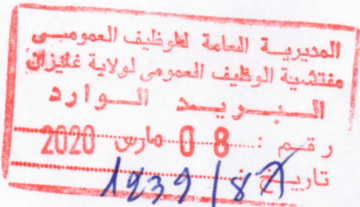 المديرية العامة للوظيف العمومي
مفتشية الوظيف العمومي لولاية غليزان
البريد الوارد
رقم : 08 مارس 2020
تاريخ : 1239/87